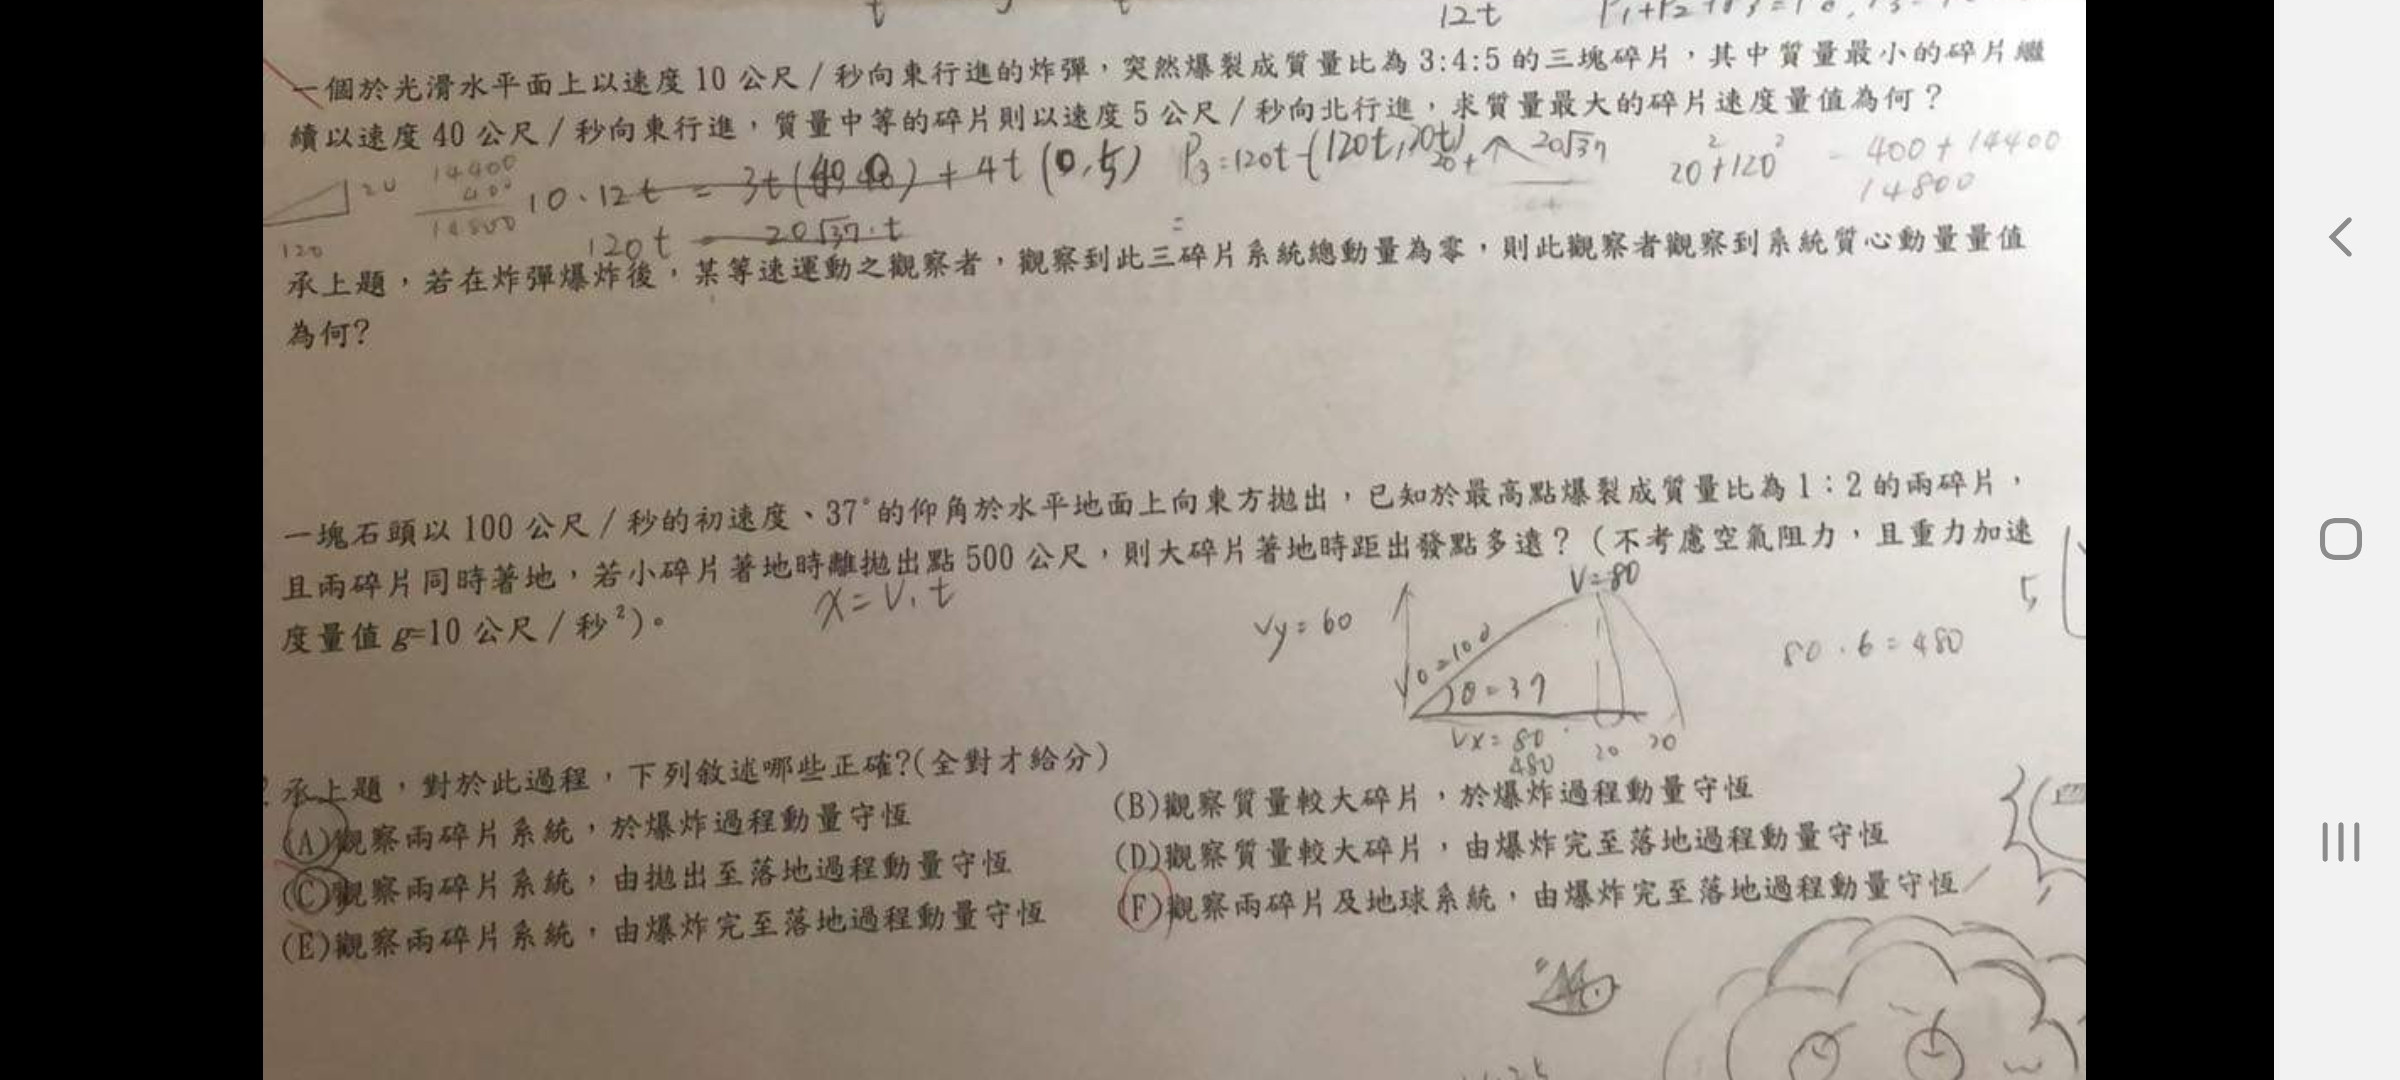 12t
一個於光滑水平面上以速度 10 公尺/秒向東行進的炸彈，突然爆裂成質量比為 3:4:5 的三塊碎片，其中質量最小的碎片繼
續以速度 40 公尺/秒向東行進，質量中等的碎片則以速度 5 公尺/秒向北行進，求質量最大的碎片速度量值為何？
20 14400 400 14800 120
10·12t = 3t( ) + 4t (0,5) P3=120t-(120t,20t) 20√37 20²+120² 400+14400
14800
120t 20√37·t
承上題，若在炸彈爆炸後，某等速運動之觀察者，觀察到此三碎片系統總動量為零，則此觀察者觀察到系統質心動量量值
為何?
一塊石頭以 100 公尺/秒的初速度、37°的仰角於水平地面上向東方拋出，已知於最高點爆裂成質量比為 1：2 的兩碎片，
且兩碎片同時著地，若小碎片著地時離拋出點 500 公尺，則大碎片著地時距出發點多遠？（不考慮空氣阻力，且重力加速
度量值 g=10 公尺/秒²）。
x=V₁t
V=80
Vy=60
V0=100
θ=37
80·6=480
Vx=80
480
20 20
承上題，對於此過程，下列敘述哪些正確?(全對才給分)
(A)觀察兩碎片系統，於爆炸過程動量守恆 (B)觀察質量較大碎片，於爆炸過程動量守恆
(C)觀察兩碎片系統，由拋出至落地過程動量守恆 (D)觀察質量較大碎片，由爆炸完至落地過程動量守恆
(E)觀察兩碎片系統，由爆炸完至落地過程動量守恆 (F)觀察兩碎片及地球系統，由爆炸完至落地過程動量守恆